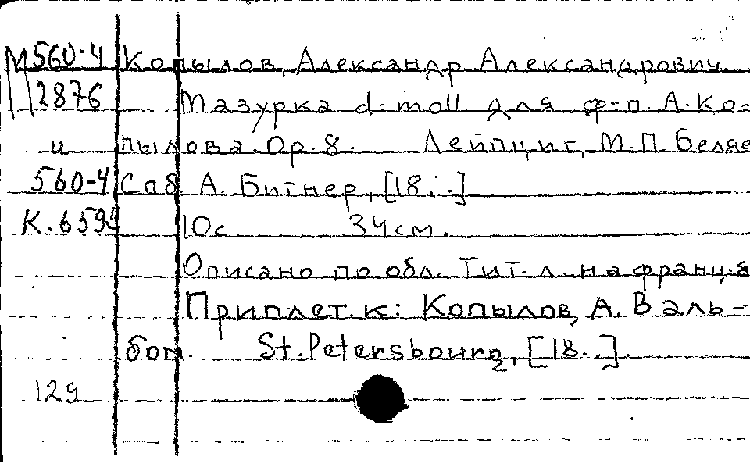 М560-4 Копылов, Александр Александрович
2876 Мазурка d-moll для ф-п. А. Ко-
и пылова. Op. 8. Лейпциг, М.П. Беляе
560-4 Спб А. Битнер, [18..]
К.6595 10с 34 см.
Описано по обл. Тит. л. на франц. я
Приплет к: Копылов, А. Валь-
бом. St. Petersbourg, [18. ].
129